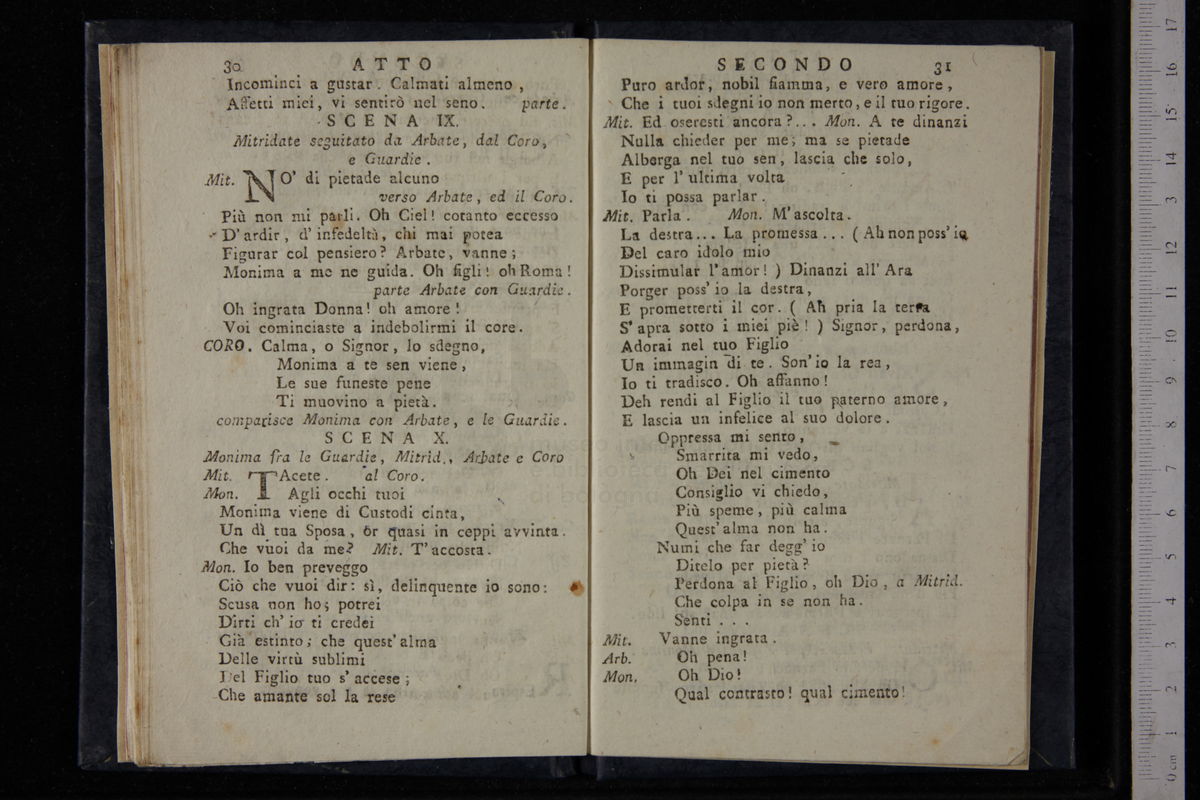 30 ATTO
Incominci a gustar. Calmati almeno,
Affetti miei, vi sentirò nel seno. parte.
SCENA IX.
Mitridate seguitato da Arbate, dal Coro,
e Guardie.
Mit. NO' di pietade alcuno
verso Arbate, ed il Coro.
Più non mi parli. Oh Ciel! cotanto eccesso
D'ardir, d'infedeltà, chi mai potea
Figurar col pensiero? Arbate, vanne;
Monima a me ne guida. Oh figli! oh Roma!
parte Arbate con Guardie.
Oh ingrata Donna! oh amore!
Voi cominciaste a indebolirmi il core.
CORO. Calma, o Signor, lo sdegno,
Monima a te sen viene,
Le sue funeste pene
Ti muovino a pietà.
comparisce Monima con Arbate, e le Guardie.
SCENA X.
Monima fra le Guardie, Mitrid., Arbate e Coro
Mit. TAcete. al Coro.
Mon. Agli occhi tuoi
Monima viene di Custodi cinta,
Un dì tua Sposa, or quasi in ceppi avvinta.
Che vuoi da me? Mit. T'accosta.
Mon. Io ben preveggo
Ciò che vuoi dir: sì, delinquente io sono:
Scusa non ho; potrei
Dirti ch'io ti credei
Già estinto; che quest'alma
Delle virtù sublimi
Del Figlio tuo s'accese;
Che amante sol la rese
SECONDO 31
Puro ardor, nobil fiamma, e vero amore,
Che i tuoi sdegni io non merto, e il tuo rigore.
Mit. Ed oseresti ancora?... Mon. A te dinanzi
Nulla chieder per me; ma se pietade
Alberga nel tuo sen, lascia che solo,
E per l'ultima volta
Io ti possa parlar.
Mit. Parla. Mon. M'ascolta.
La destra... La promessa... (Ah non poss'io
Del caro idolo mio
Dissimular l'amor!) Dinanzi all'Ara
Porger poss'io la destra,
E promettterti il cor. (Ah pria la terra
S'apra sotto i miei piè!) Signor, perdona,
Adorai nel tuo Figlio
Un immagin di te. Son'io la rea,
Io ti tradisco. Oh affanno!
Deh rendi al Figlio il tuo paterno amore,
E lascia un infelice al suo dolore.
Oppressa mi sento,
Smarrita mi vedo,
Oh Dei nel cimento
Consiglio vi chiedo,
Più speme, più calma
Quest'alma non ha.
Numi che far degg'io
Ditelo per pietà?
Perdona al Figlio, oh Dio, a Mitrid.
Che colpa in se non ha.
Senti...
Mit. Vanne ingrata.
Arb. Oh pena!
Mon. Oh Dio!
Qual contrasto! qual cimento!
0 cm 1 2 3 4 5 6 7 8 9 10 11 12 13 14 15 16 17